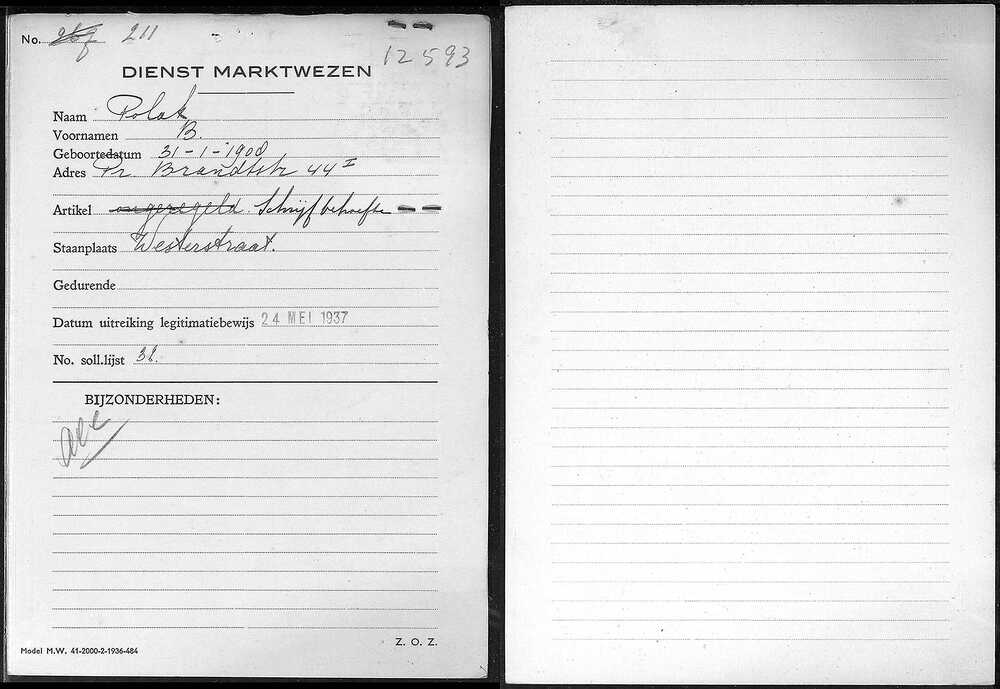 No. 211
12593
DIENST MARKTWEZEN
Naam Polak
Voornamen B.
Geboortedatum 31-1-1908
Adres Pr. Brandtstr 44 I
Artikel ongeregeld. Schrijfbehoefte
Staanplaats Westerstraat.
Gedurende
Datum uitreiking legitimatiebewijs 24 MEI 1937
No. soll.lijst 31.
BIJZONDERHEDEN:
Z. O. Z.
Model M.W. 41-2000-2-1936-484